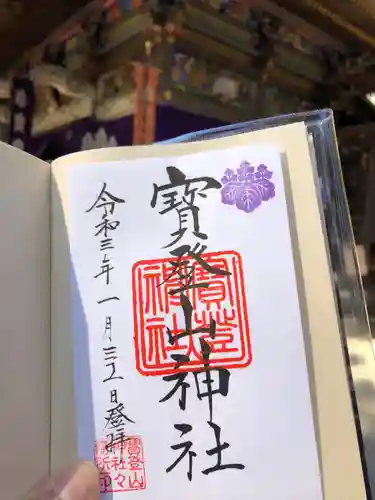 寶登山神社
令和三年一月三十一日登拝
寶登山
神社
寶登山
神社々
務所印